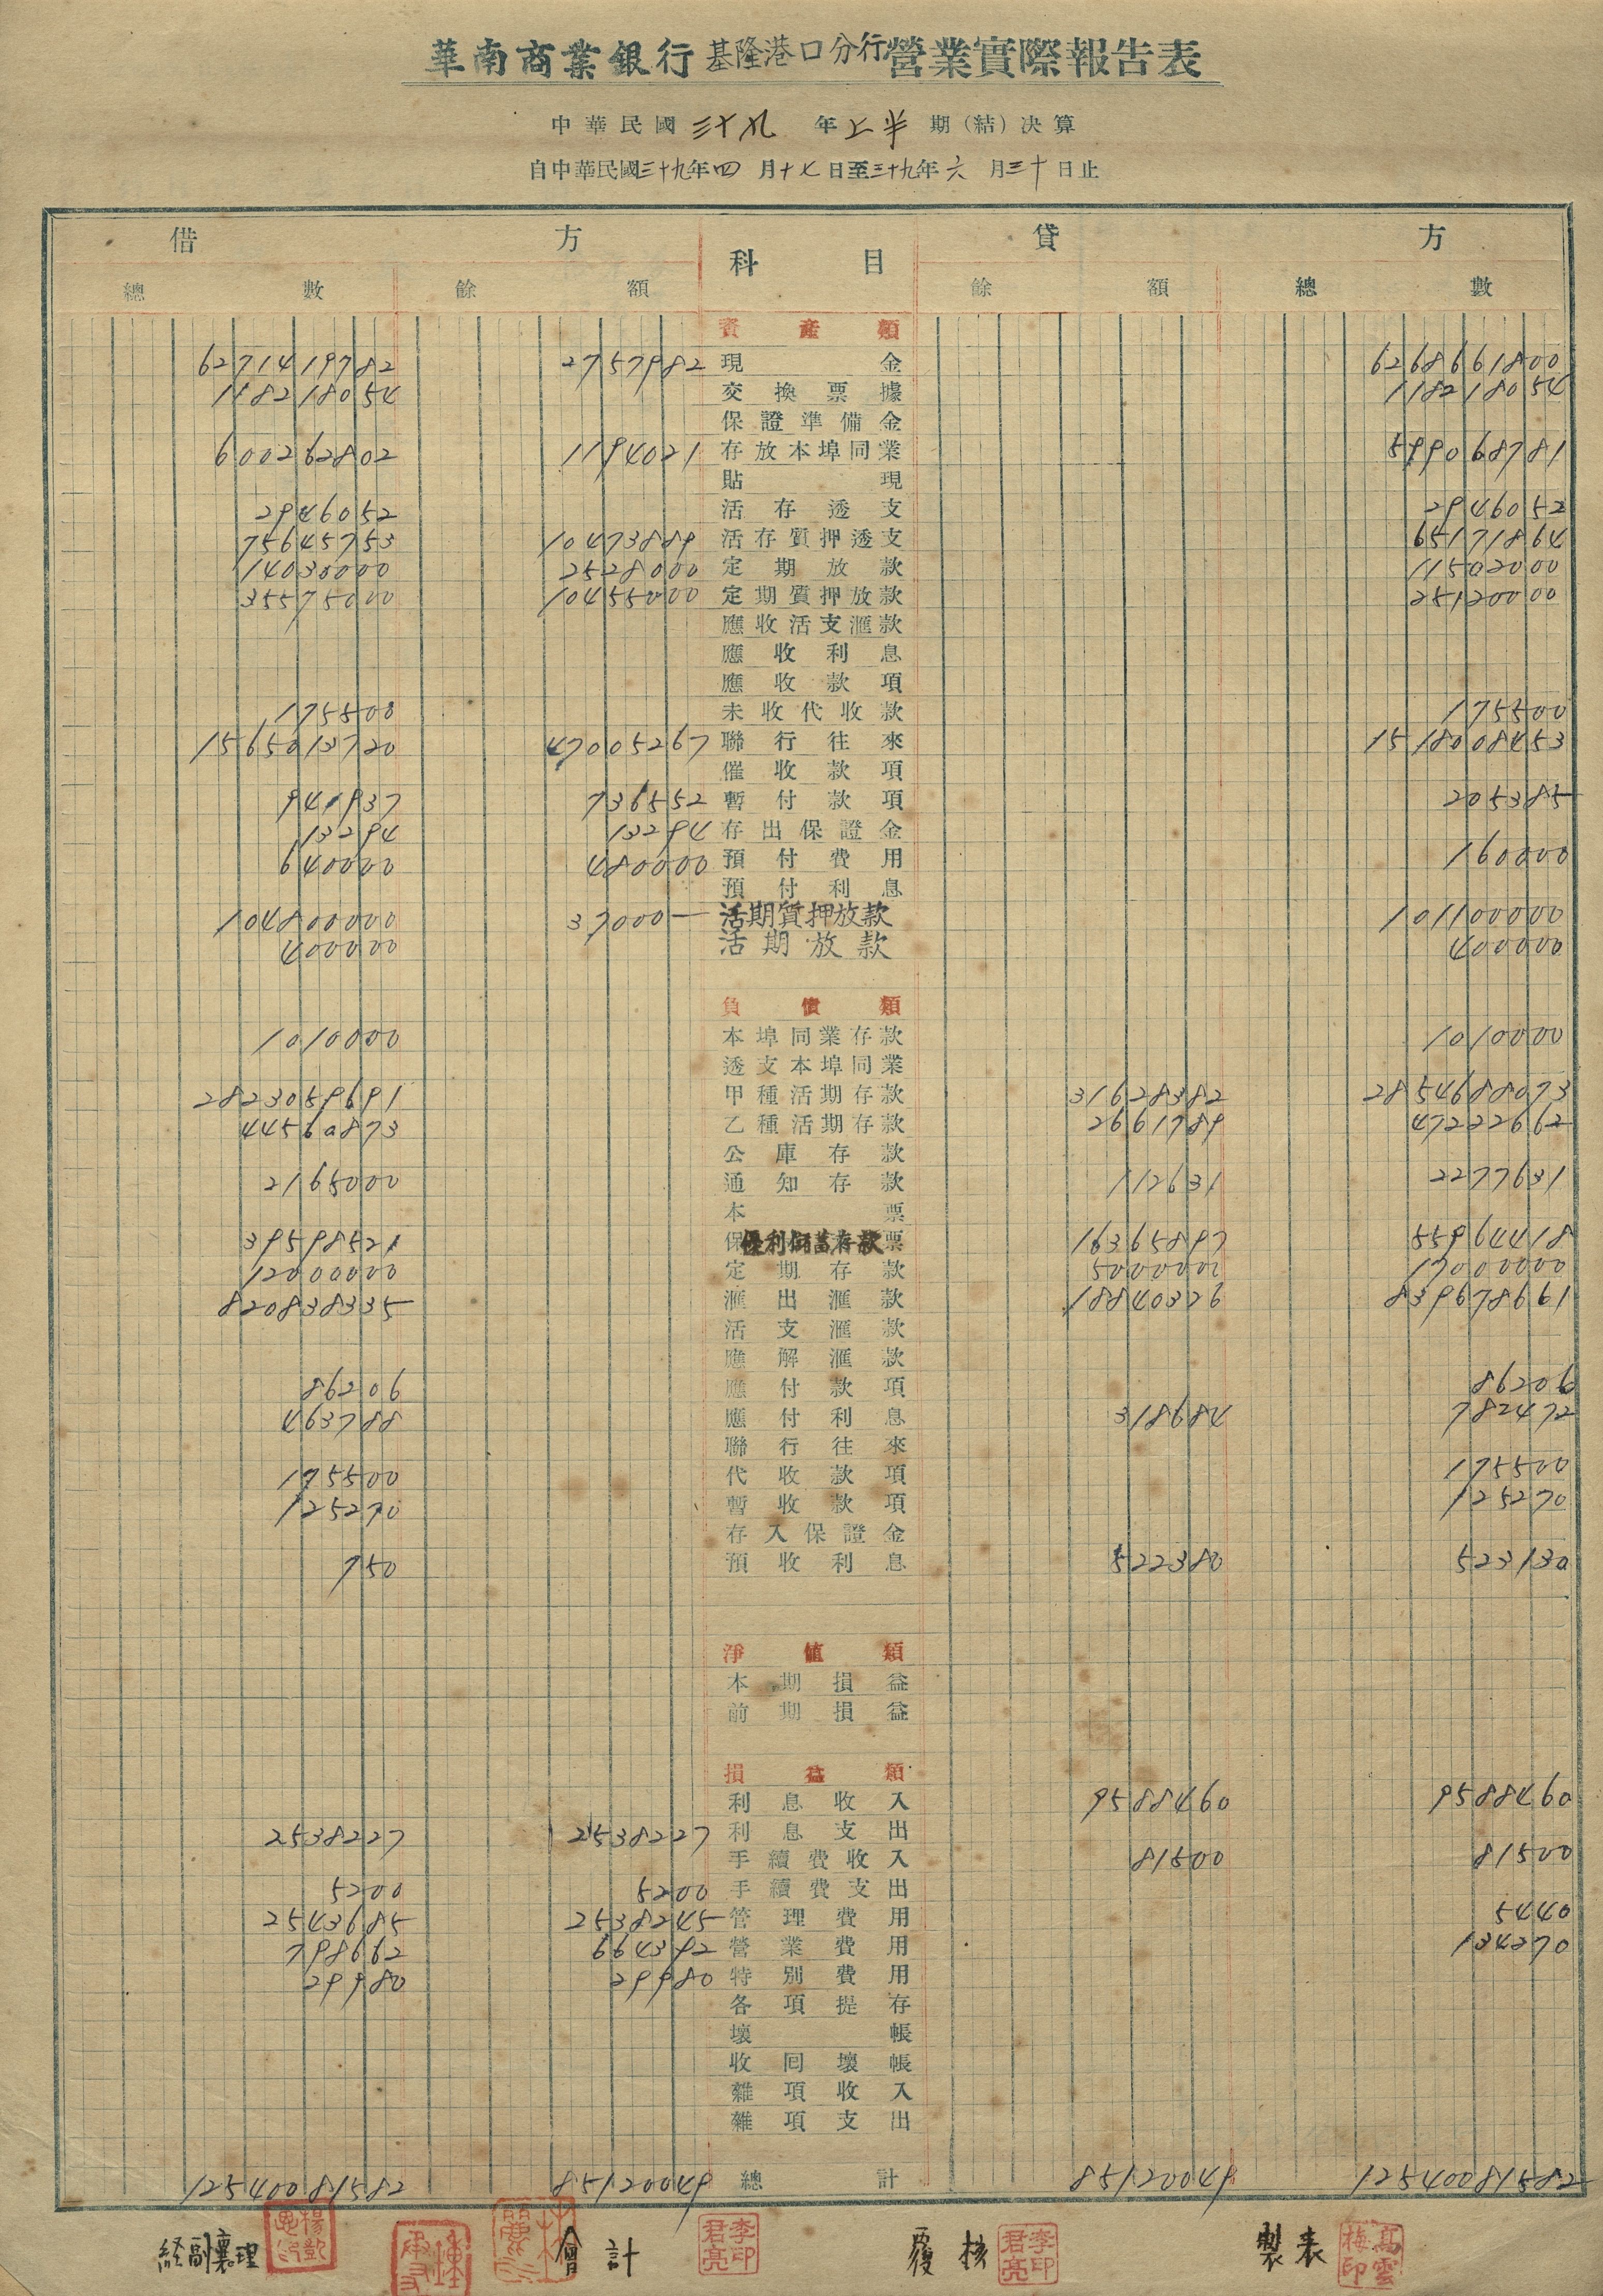 華南商業銀行基隆港口分行營業實際報告表
中華民國三十九年上半期(結)決算
自中華民國三十九年四月十七日至三十九年六月三十日止
借方 科目 貸方
總數 餘額 餘額 總數
資產類
6271419782 2757982 現金 6268661800
118218054 交換票據 118218054
保證準備金
600262802 1194021 存放本埠同業 599068781
貼現
2946052 活存透支 2946052
75645753 10473889 活存質押透支 65171864
14030000 2528000 定期放款 11502000
35575000 10455000 定期質押放款 25120000
應收活支滙款
應收利息
應收款項
175500 未收代收款 175500
1565013720 47005267 聯行往來 1518008453
催收款項
941937 736552 暫付款項 205385
13294 13294 存出保證金
640000 480000 預付費用 160000
預付利息
104800000 37000— 活期質押放款 101100000
400000 活期放款 400000
負債類
1010000 本埠同業存款 1010000
透支本埠同業
2823059691 甲種活期存款 31628382 2854688073
44560873 乙種活期存款 2661789 47222662
公庫存款
2165000 通知存款 112631 2277631
本票
39598521 優利儲蓄存款 16365897 55964418
12000000 定期存款 5000000 17000000
820838335 滙出滙款 18840326 839678661
活支滙款
應解滙款
86206 應付款項 86206
463788 應付利息 318684 782472
聯行往來
175500 代收款項 175500
125270 暫收款項 125270
存入保證金
750 預收利息 522380 523130
淨值類
本期損益
前期損益
損益類
利息收入 9588460 9588460
2538227 2538227 利息支出
手續費收入 81500 81500
5200 5200 手續費支出
2543685 2538245 管理費用 5440
798662 664392 營業費用 134270
29980 29980 特別費用
各項提存
壞帳
收回壞帳
雜項收入
雜項支出
12540081582 85120049 總計 85120049 12540081582
経副襄理 會計 李君亮印 覆核 李君亮印 製表 高雲梅印